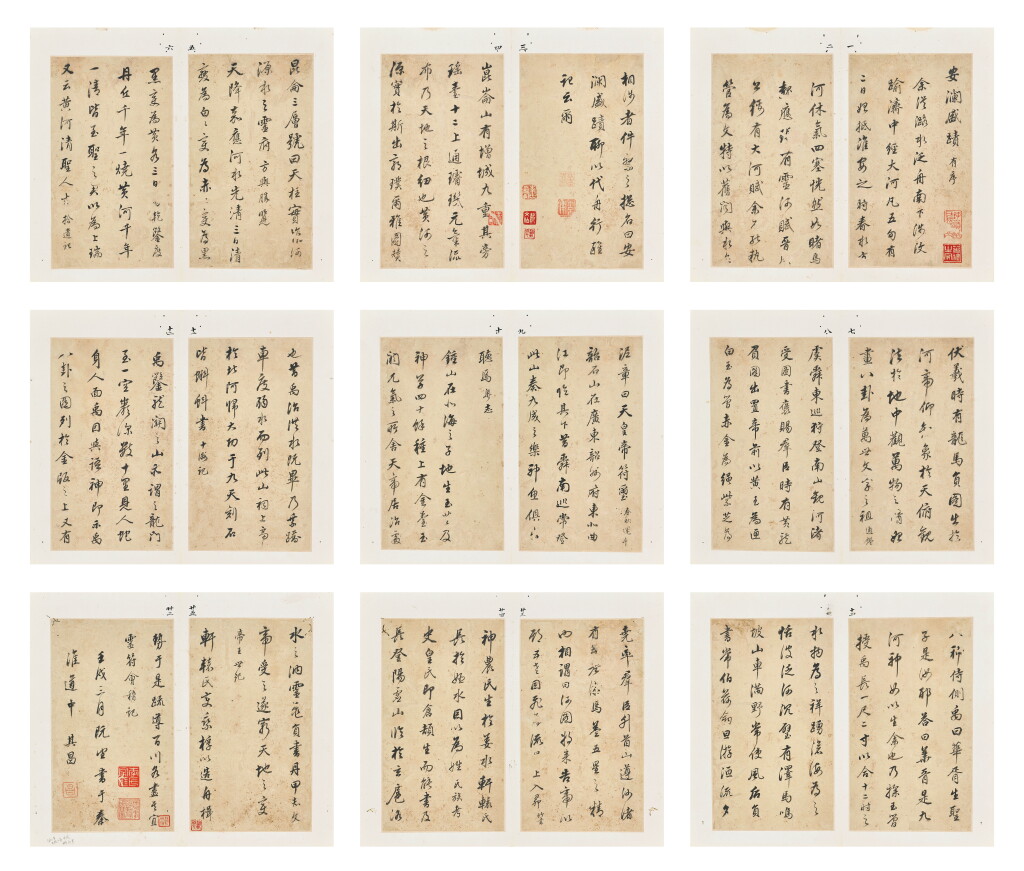 一
安瀾盛蹟 有序
余從潞水泛舟南下溝汶
踰濟中經大河凡五旬有
二日始抵淮安之春水方
二
河休氣四塞恍然如睹馬
應有靈河賦晉
綏有大河賦余
管為文特以舊聞與水
三
相涉者件繫之總名曰安
瀾盛蹟聊以代舟行雜
記云爾
四
崑崙山有增城九重其旁
瑤臺十二上通璿璣元氣流
布乃天地之根紐也黃河之
源實於斯出郭璞爾雅圖贊
五
崑侖三層號曰天柱實惟河
源水之靈府 方輿勝覽
天降嘉應河水先清三日清
變為白白之變為赤赤變為黑
六
黑變為黃各三日 易乾鑿度
丹丘千年一燒黃河千年
一清皆至聖之君以為上瑞
又云黃河清聖人生 拾遺記
七
伏羲時有龍馬負圖出於
河帝仰觀象於天俯觀
法於地中觀萬物之情始
畫八卦為萬世文字之祖 通鑑
八
虞舜東巡狩登南山觀河渚
受圖書褒賜群臣時有黃龍
負圖出置帝前以黃玉為匣
白玉為檢赤金為繩紫芝為
九
泥章曰天皇帝符璽 春秋運斗
韶石山在廣東韶州府東北曲
江即臨其下昔舜南巡常登
此山奏九成之樂俱
十
聽焉 郡志
鍾山在北海之子地生玉芝及
神草四十餘種上有金臺玉
闕元氣之所舍天帝居治處
十一
也昔禹治洪水既畢乃乘蹻
車度弱水而到此山祠上帝
於北阿歸大功于九天刻石
皆蝌蚪書 十洲記
十二
禹鑿龍關之山亦謂之龍門
至一空巖深數十里見人蛇
身人面禹因與語神即示禹
八卦之圖列於金版之上又有
八神侍側禹曰華胥生聖
子是汝邪答曰華胥是九
河神女以生余也乃探玉簡
授禹長一尺二寸以合十二時之
水物為之祥踴滄海為之
恬波泛河沉璧有澤馬鳴
坡山車滿野常使風后負
書常伯荷劍旦游洹流夕
廿三
堯率群臣升首山遵河渚
有五老游焉蓋五星之精
也相謂曰河圖將來告帝以
期五老因飛為流星上入昴
廿四
神農氏生於姜水軒轅氏
長於姬水因以為姓 氏族考
史皇氏即倉頡生而能書及
長登陽虛山臨於玄扈洛
廿五
水之汭靈龜負書丹甲青文
帝受之遂窮天地之變
帝王世紀
軒轅氏變乘桴以造舟楫
勢于是疏導百川各盡其宜
靈符會稽記
壬戌三月既望書于秦
淮道中 其昌